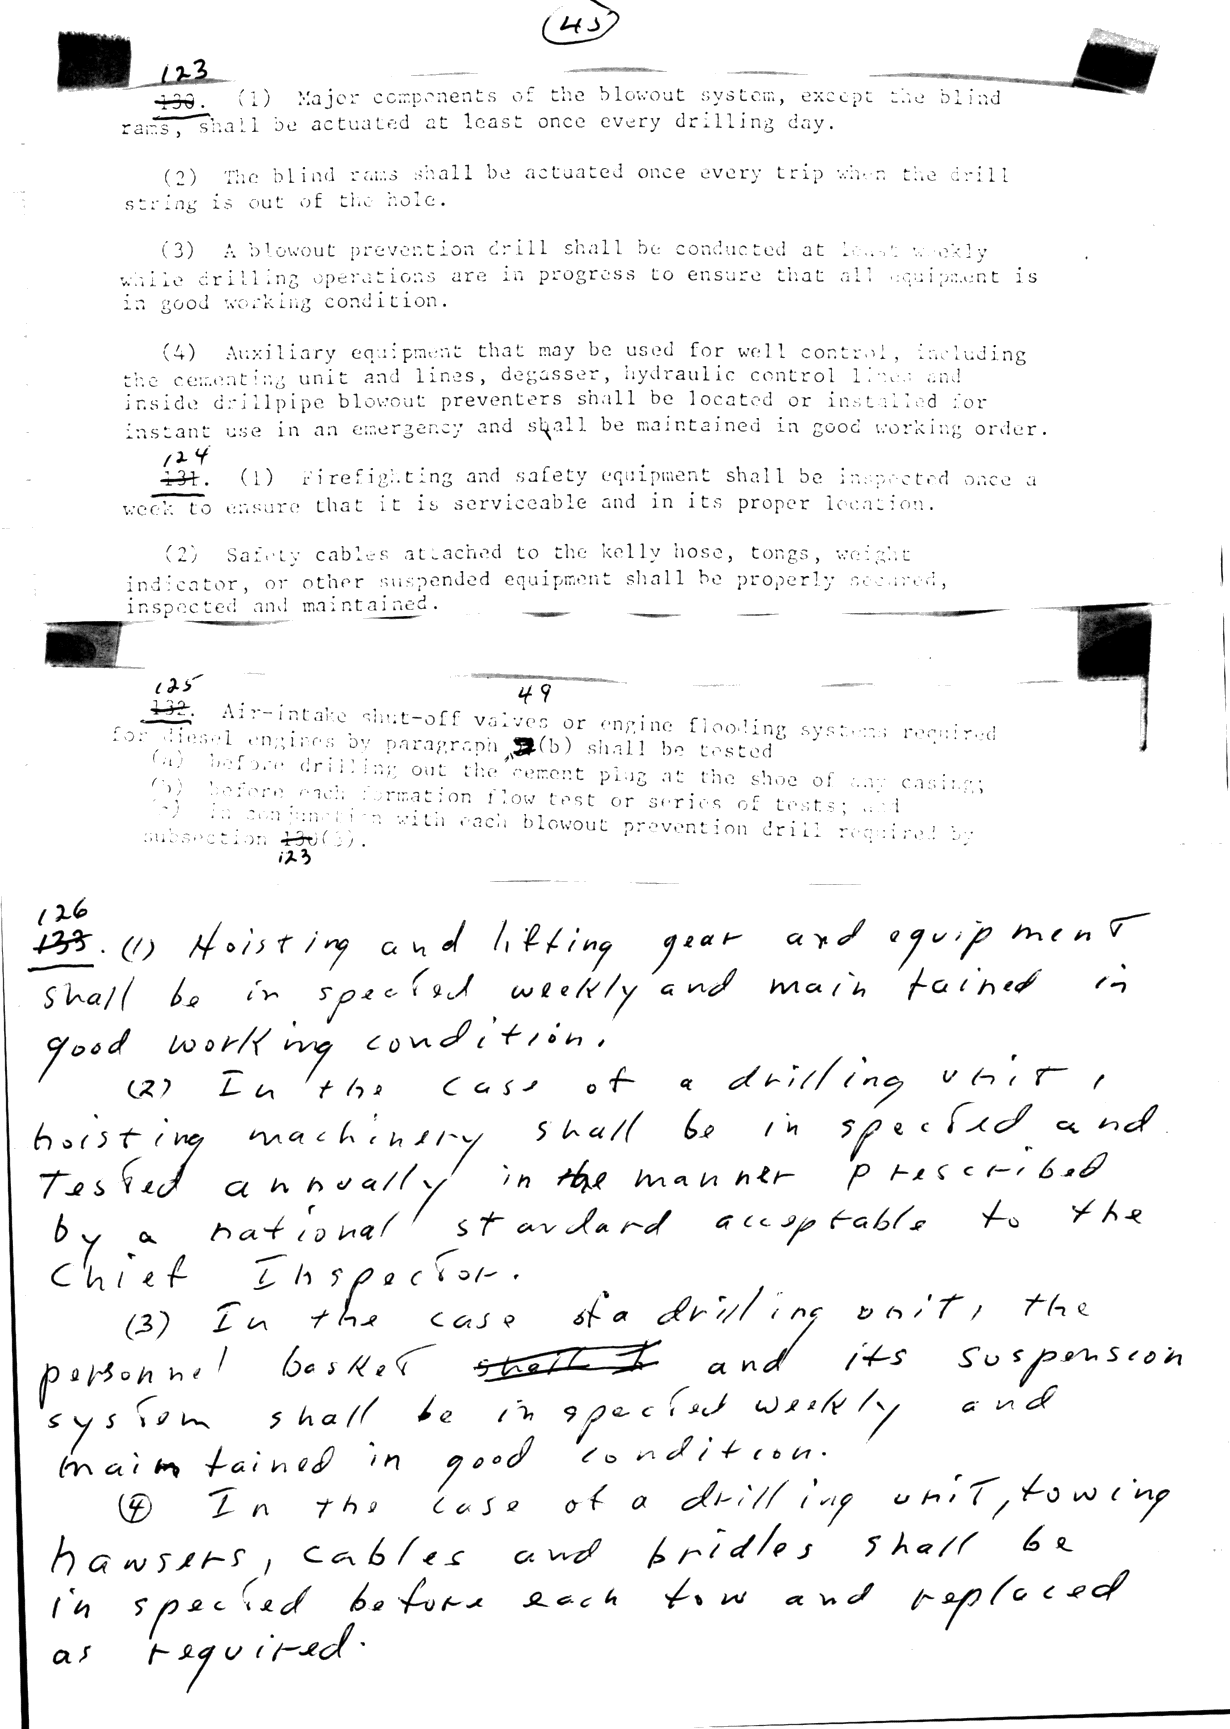 45
123
130. (1) Major components of the blowout system, except the blind
rams, shall be actuated at least once every drilling day.
(2) The blind rams shall be actuated once every trip when the drill
string is out of the hole.
(3) A blowout prevention drill shall be conducted at least weekly
while drilling operations are in progress to ensure that all equipment is
in good working condition.
(4) Auxiliary equipment that may be used for well control, including
the cementing unit and lines, degasser, hydraulic control lines and
inside drillpipe blowout preventers shall be located or installed for
instant use in an emergency and shall be maintained in good working order.
124
131. (1) Firefighting and safety equipment shall be inspected once a
week to ensure that it is serviceable and in its proper location.
(2) Safety cables attached to the kelly hose, tongs, weight
indicator, or other suspended equipment shall be properly secured,
inspected and maintained.
125
49
132. Air-intake shut-off valves or engine flooding systems required
for diesel engines by paragraph (b) shall be tested
(a) before drilling out the cement plug at the shoe of any casing;
(b) before each formation flow test or series of tests; and
(c) in conjunction with each blowout prevention drill required by
subsection 130(3).
123
126
133. (1) Hoisting and lifting gear and equipment
shall be inspected weekly and maintained in
good working condition.
(2) In the case of a drilling unit,
hoisting machinery shall be inspected and
Tested annually in the manner prescribed
by a national standard acceptable to the
Chief Inspector.
(3) In the case of a drilling unit, the
personnel basket and its suspension
system shall be inspected weekly and
maintained in good condition.
(4) In the case of a drilling unit, towing
hawsers, cables and bridles shall be
inspected before each tow and replaced
as required.